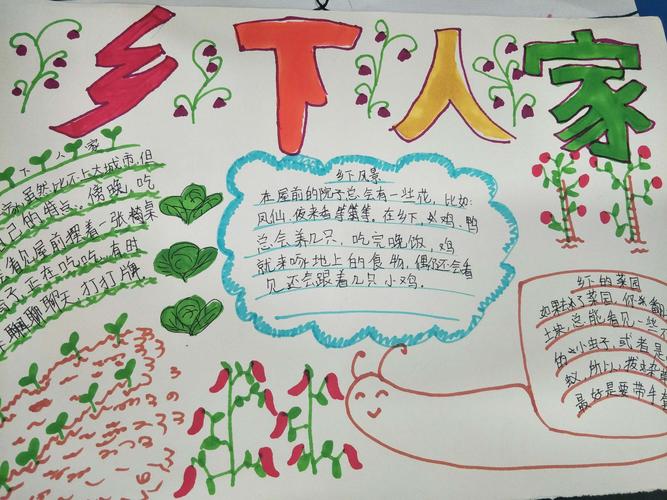 乡下人家
下人家
虽然比不上大城市,但
己的特点。傍晚,吃
看见屋前摆着一张椅桌
子,正在吃吃,有时
聊聊聊天,打打牌
乡下风景
在屋前的院子总会有一些花,比如:
凤仙、夜来香等等等,在乡下,鸡、鸭
总会养几只,吃完晚饭,鸡
就来啄地上的食物,偶尔还会看
见还会跟着几只小鸡。
乡下的菜园
如果来了菜园,你
土块,总能看见一些
的小虫子,或者是
蚁,所以,拨
最好是要带手套